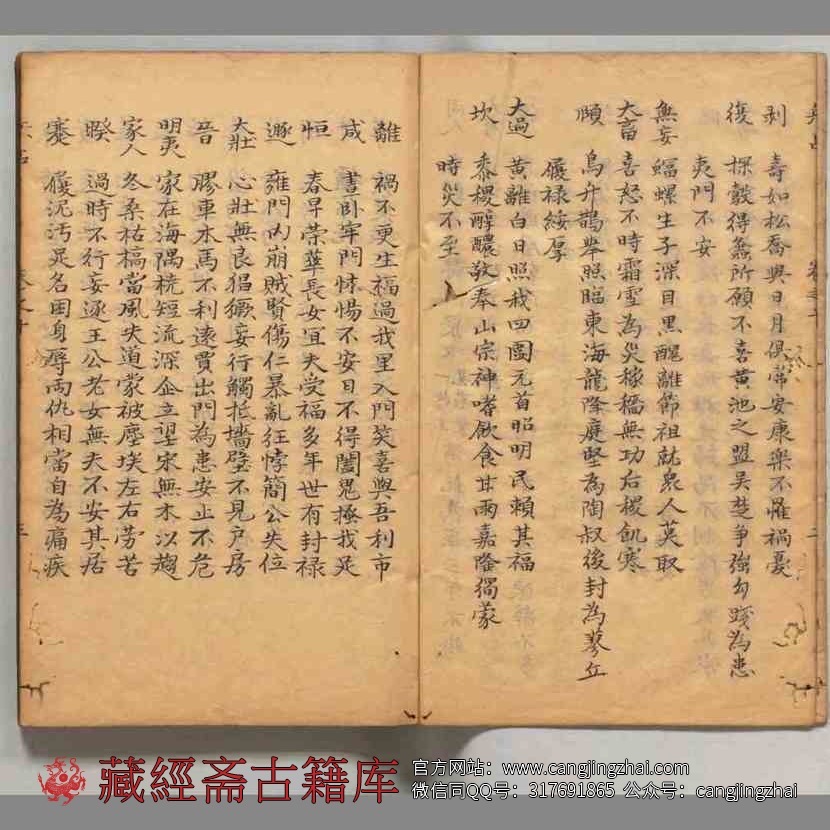 剥 壽如松喬與日月俱常安康樂不罹禍憂
復 探鷇得蠡所願不喜黃池之盟吳楚爭強勾踐為患
夷門不安
無妄 蝠螺生子深目黑醜雖飾相就眾人莫取
大畜 喜怒不時霜雪為災稼穡無功后稷飢寒
頤 鳥升鵲舉照臨東海龍降庭堅為陶叔後封為蓼丘
履祿綏厚
大過 黃離白日照我四國元首昭明民賴其福
坎 黍稷醇醲敬奉山宗神嗜飲食甘雨嘉降獨蒙
時災不至
離 禍不更生福過我里入門笑喜與吾利市
咸 晝臥牢門悚惕不安目不得闔鬼搔我足
恒 春早榮華長女宜夫受福多年世有封祿
遯 雍門內崩賊賢傷仁暴亂狂悖簡公失位
大壯 心壯無良猖獗妄行觸抵墻壁不見戶房
晉 膠車木馬不利遠賈出門為患安止不危
明夷 家在海隅橈短流深企立望宋無木以趨
家人 冬桑枯槁當風失道蒙被塵埃左右勞苦
睽 過時不行妄逐王公老女無夫不安其居
蹇 履泥污足名困身辱兩仇相當自為痛疾
藏經斋古籍库
官方网站：www.cangjingzhai.com
微信同QQ号：317691865 公众号：cangjingzhai